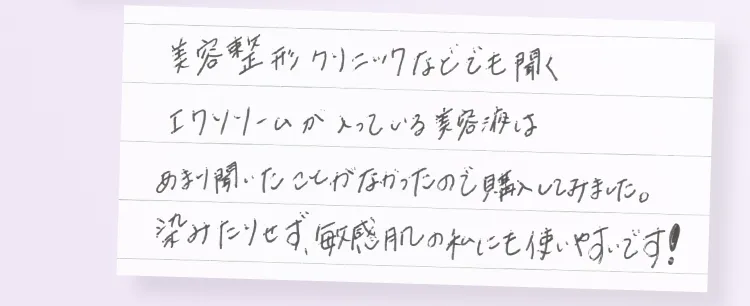 美容整形クリニックなどでも聞く
エクソソームが入っている美容液は
あまり聞いたことがなかったので購入してみました。
染みたりせず、敏感肌の私にも使いやすいです!